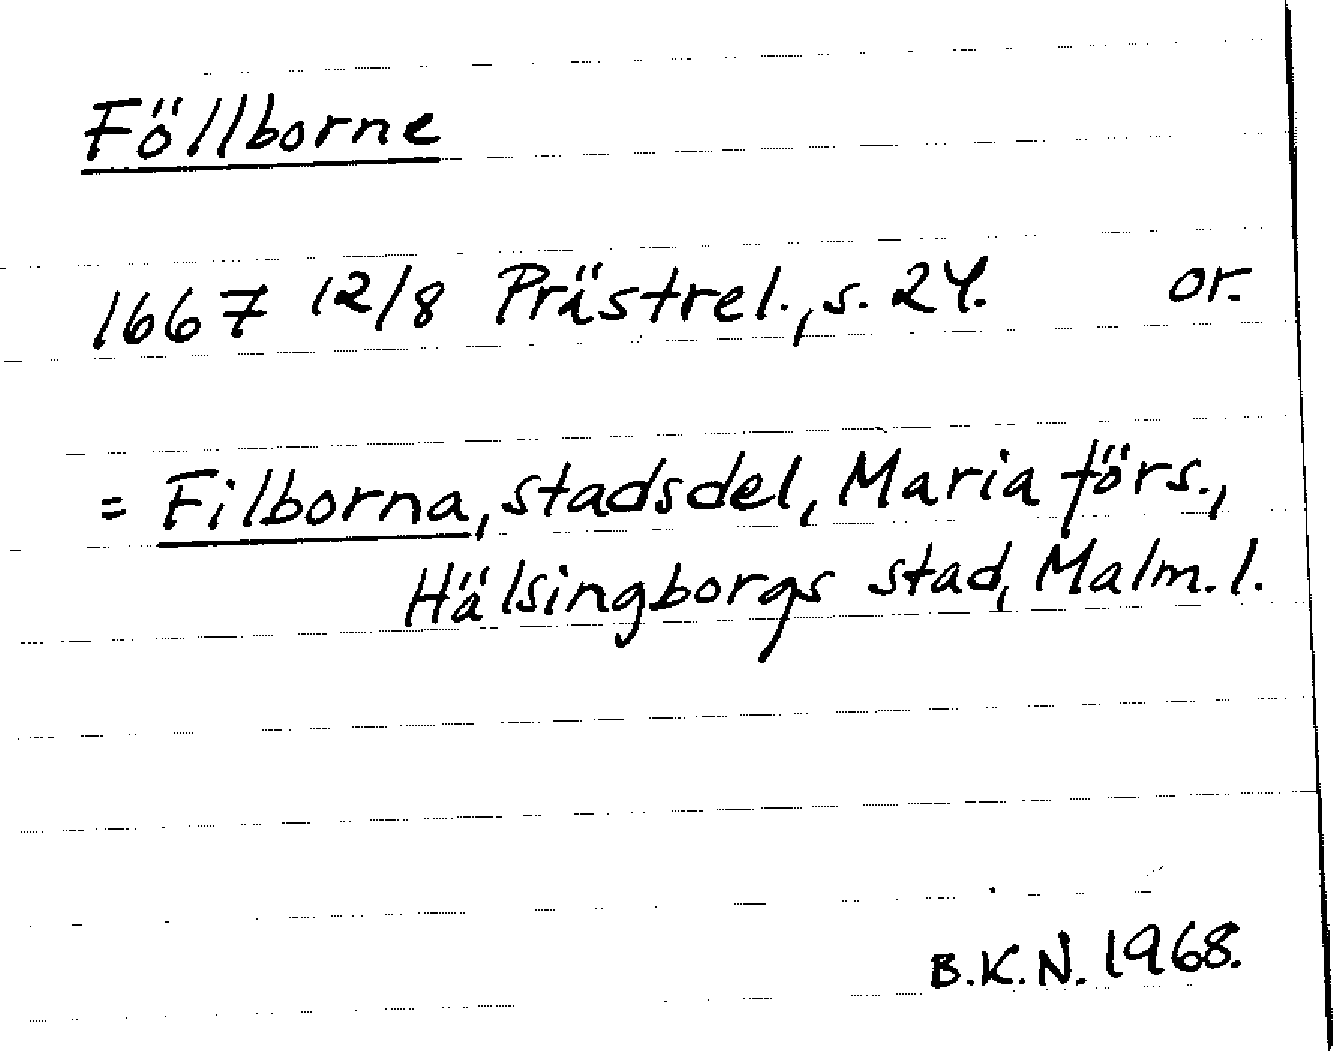 Föllborne
1667 12/8 Prästrel., s. 24. or.
= Filborna, stadsdel, Maria förs.,
Hälsingborgs stad, Malm. l.
B.K.N. 1968.